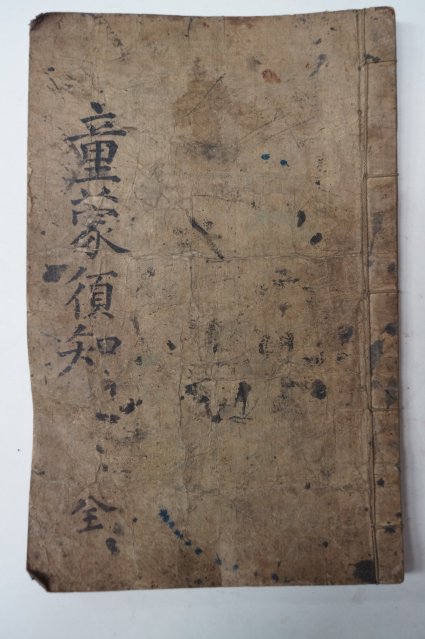 童蒙須知
全